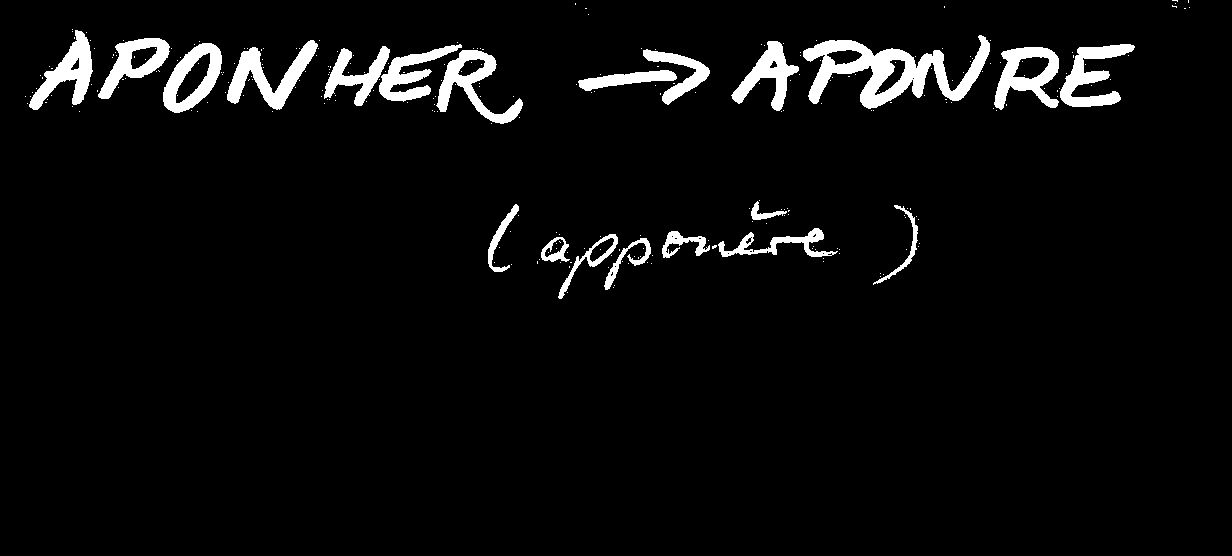 APONHER → APONRE
(apponĕre)